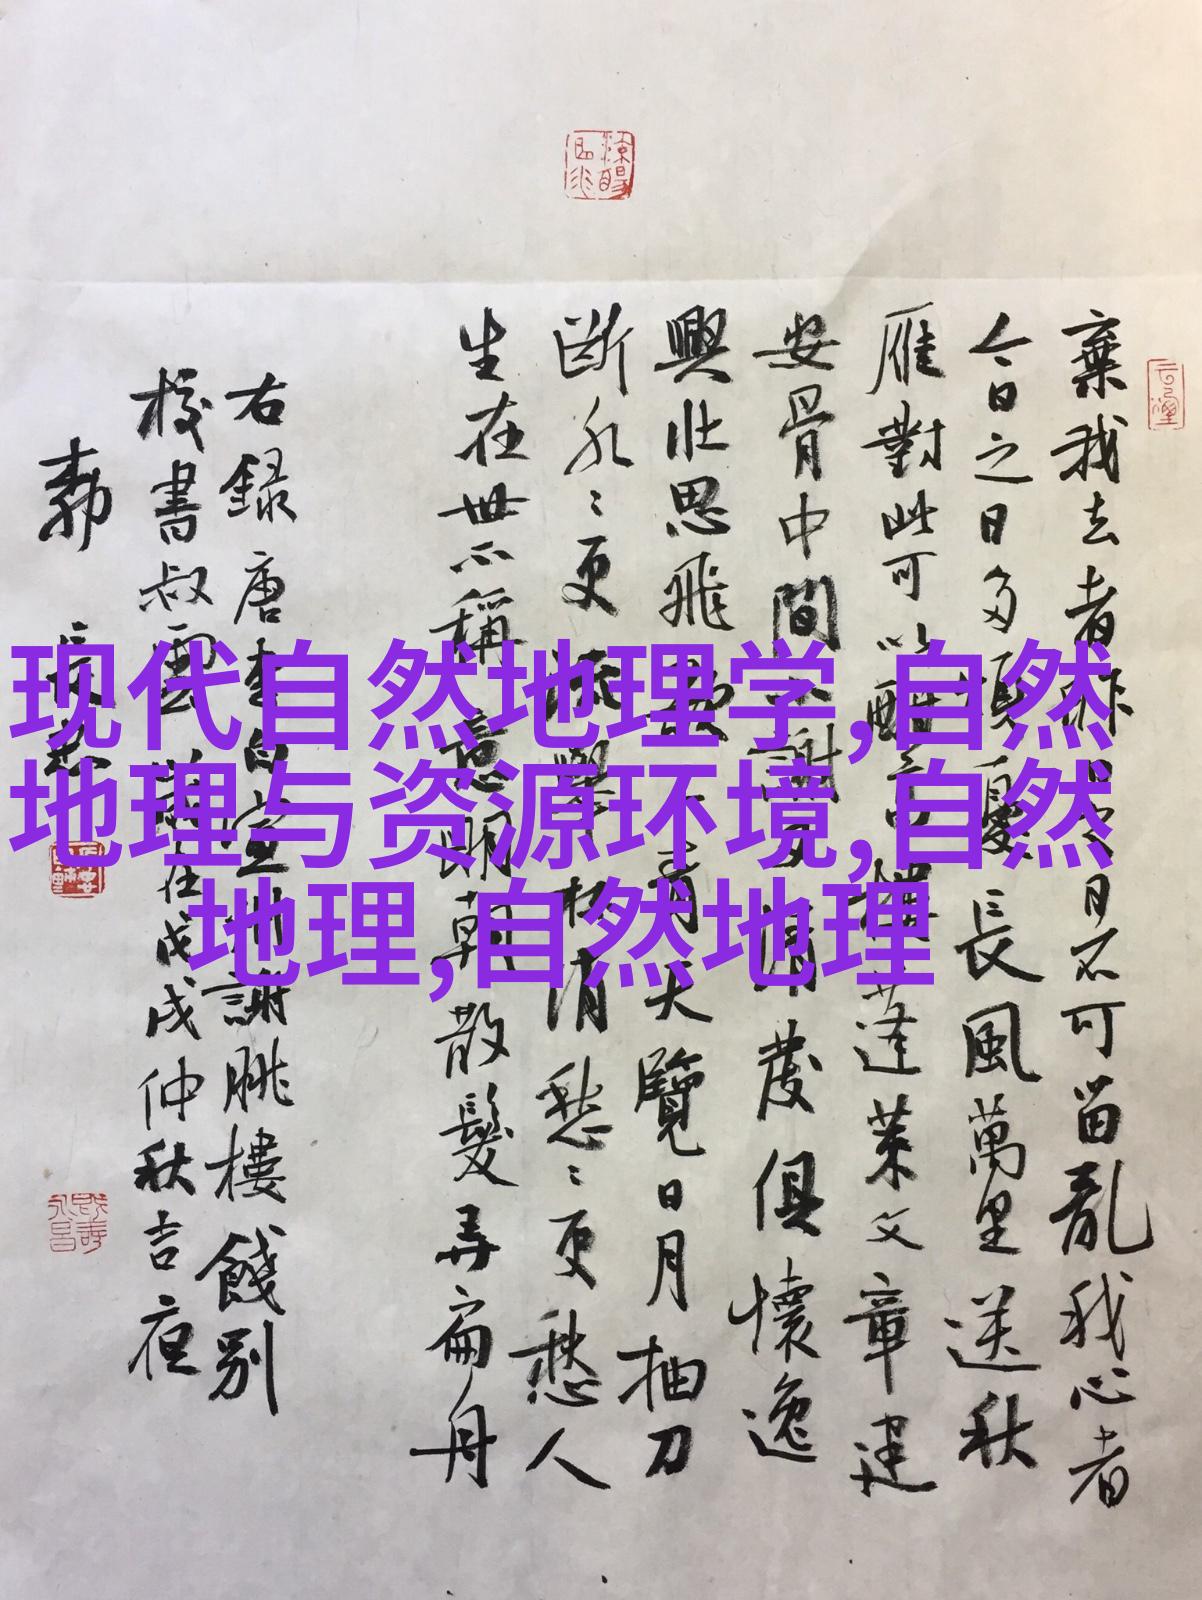 现代自然地理学,自然
地理与资源环境,自然
地理,自然地理
棄我去者昨日之日不可留亂我心者
今日之日多煩憂長風萬里送秋
雁對此可以酣高樓蓬萊文章建
安骨中間小謝又清發俱懷逸
興壯思飛欲上青天覽日月抽刀
斷水〻更流舉杯消愁〻更愁人
生在世不稱意明朝散髮弄扁舟
右録唐李白宣州謝朓樓餞別
校書叔雲歲在戊戌仲秋吉夜